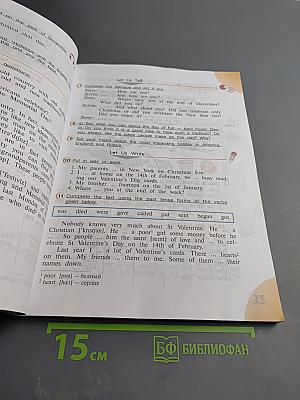 Let Us Talk
7 Complete the dialogue and act it out.
Terry: ... How are you?
Sylvia: ... And how are you?
Terry: ... Where were you at the end of December?
What did you do?
Sylvia: ... And what about you? Did you celebrate only
Christmas or did you celebrate the New Year too?
Did you enjoy it?
Terry: ...
8 a) Say what you can about the day of fun — April Fools' Day.
b) Do you think it is a good idea to have such a holiday? Do
you always like the jokes people make on this day? Why?
9 Tell your friend about the most interesting holiday in America,
England and Russia.
Let Us Write
10 Put in was or were.
1. My parents ... in New York on Christmas Eve.
2. I ... at home on the 14th of February, we ... busy read-
ing our Valentine's Day cards.
3. My brother ... fourteen on the 1st of January.
4. Where ... you at the end of the week?
11 Complete the text using the past tense forms of the verbs
given below.
was died were gave called put sent began got
Nobody knows very much about St Valentine. He ... a
Christian ['krɪstʃən]. He ... a poor¹ girl some money before he
... . So people ... him the saint [seɪnt] of love and ... to cel-
ebrate St Valentine's Day on the 14th of February.
Last year I ... a lot of Valentine's cards. There ... hearts²
on them. My friends ... them to me. Some of them ... their
names down.
¹ poor [pʊə] — бедный
² heart [hɑːt] — сердце
25
15 см
БФ БИБЛИОФАН